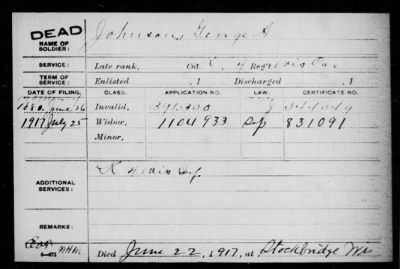 DEAD
NAME OF SOLDIER: Johnson, George A
SERVICE: Late rank, Co. C, 4 Reg't Wis Cav.
TERM OF SERVICE: Enlisted , 1 Discharged , 1
DATE OF FILING. CLASS. APPLICATION NO. LAW. CERTIFICATE NO.
1880, June 26 Invalid, 391.300
1917 July 25 Widow, 1104 933 831091
Minor,
ADDITIONAL SERVICES: K 4 Wis Inf.
REMARKS:
Died June 22, 1917, at Stockbridge Wis